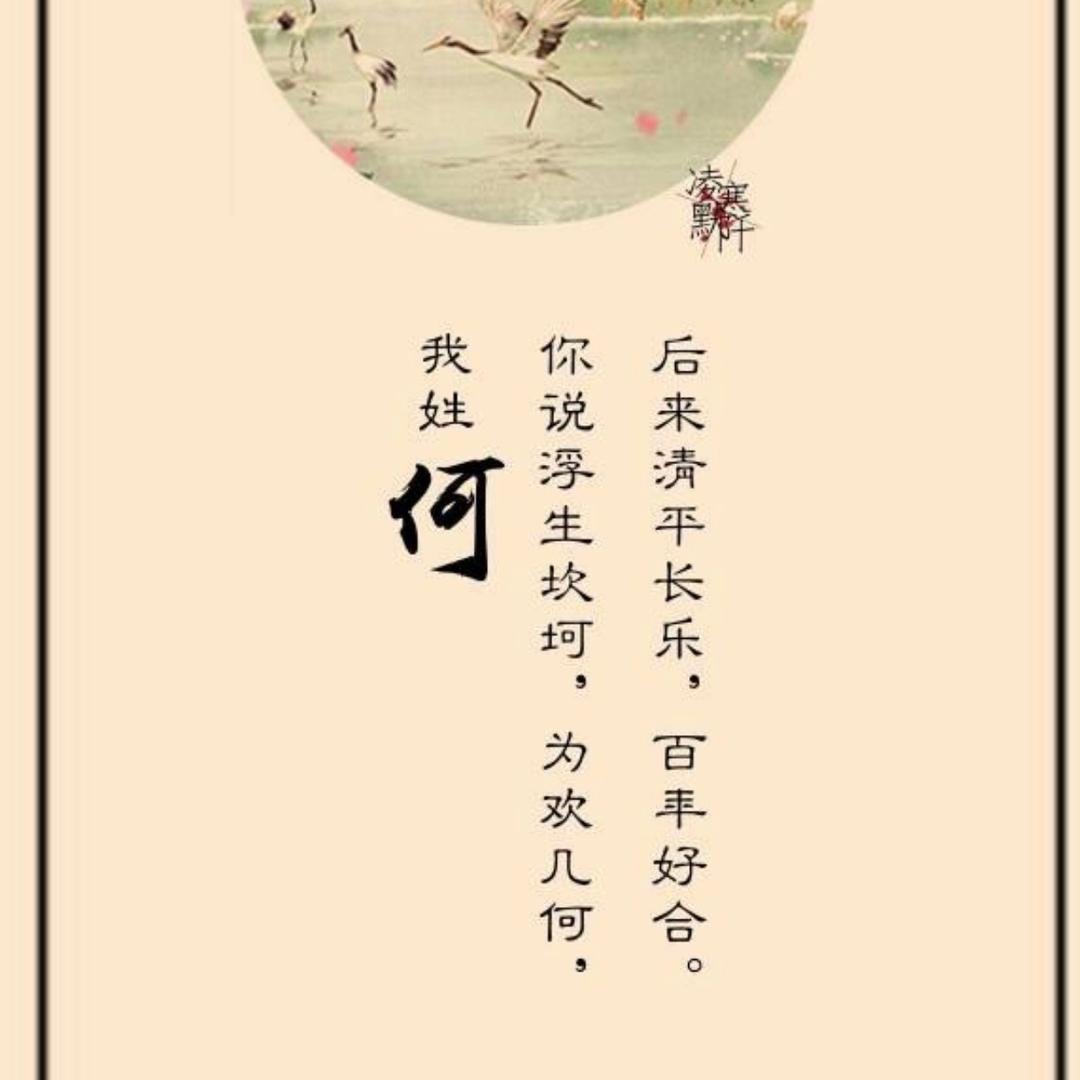 我姓何
你说浮生坎坷，为欢几何，
后来清平长乐，百年好合。